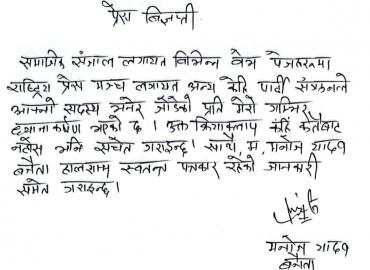 प्रेस विज्ञप्ती
सामाजिक संजाल लगायत विभिन्न वेव पेजहरुमा
राष्ट्रिय प्रेस मञ्च लगायत अन्य केहि पार्टी संगठनले
आफ्नो सदस्य भनेर जोडेको प्रति मेरो गम्भिर
ध्यानाकर्षण भएको छ। उक्त क्रियाकलाप कहिं कतैबाट
नहोस भनि सचेत गराईन्छ। साथै, म, मनोज यादव
बनैता हालसम्म स्वतन्त्र पत्रकार रहेको जानकारी
समेत गराइन्छ।
मनोज यादव
बनैता